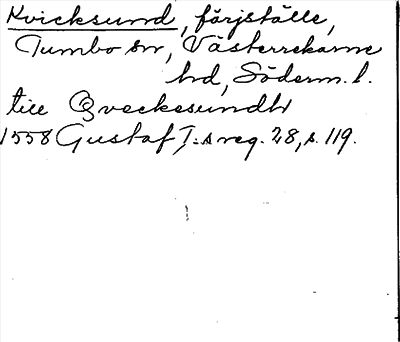 Kvicksund, färjställe,
Tumbo sn, Västerrekarne
hd, Söderm. l.
till Qveckesundh
1558 Gustaf I:s reg. 28, s. 119.